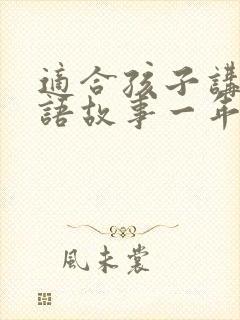 適合孩子講
語故事一年
風未裳